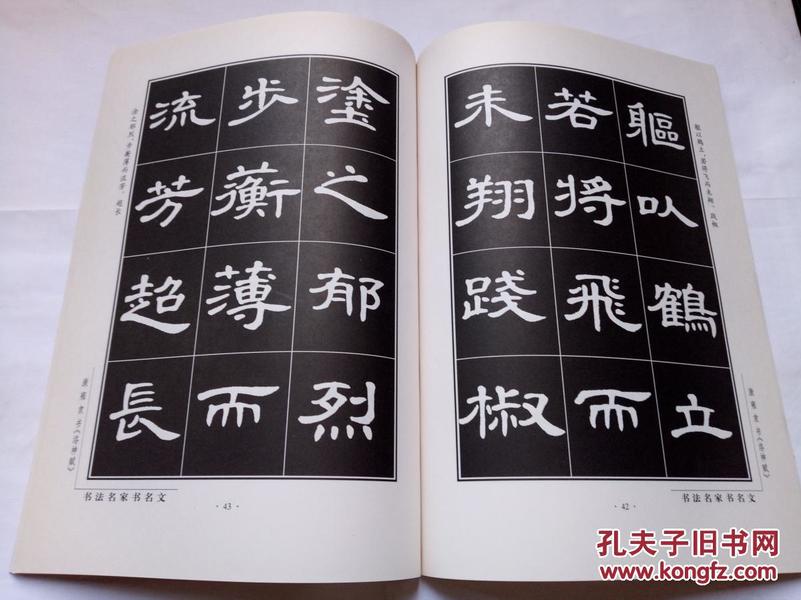 軀以鶴立
若將飛而
未翔踐椒
躯以鹤立，若将飞而未翔。践椒
康雍隶书《洛神赋》
书法名家书名文
·42·
塗之郁烈
步蘅薄而
流芳超長
涂之郁烈，步蘅薄而流芳。超长
康雍隶书《洛神赋》
书法名家书名文
·43·
孔夫子旧书网
www.kongfz.com